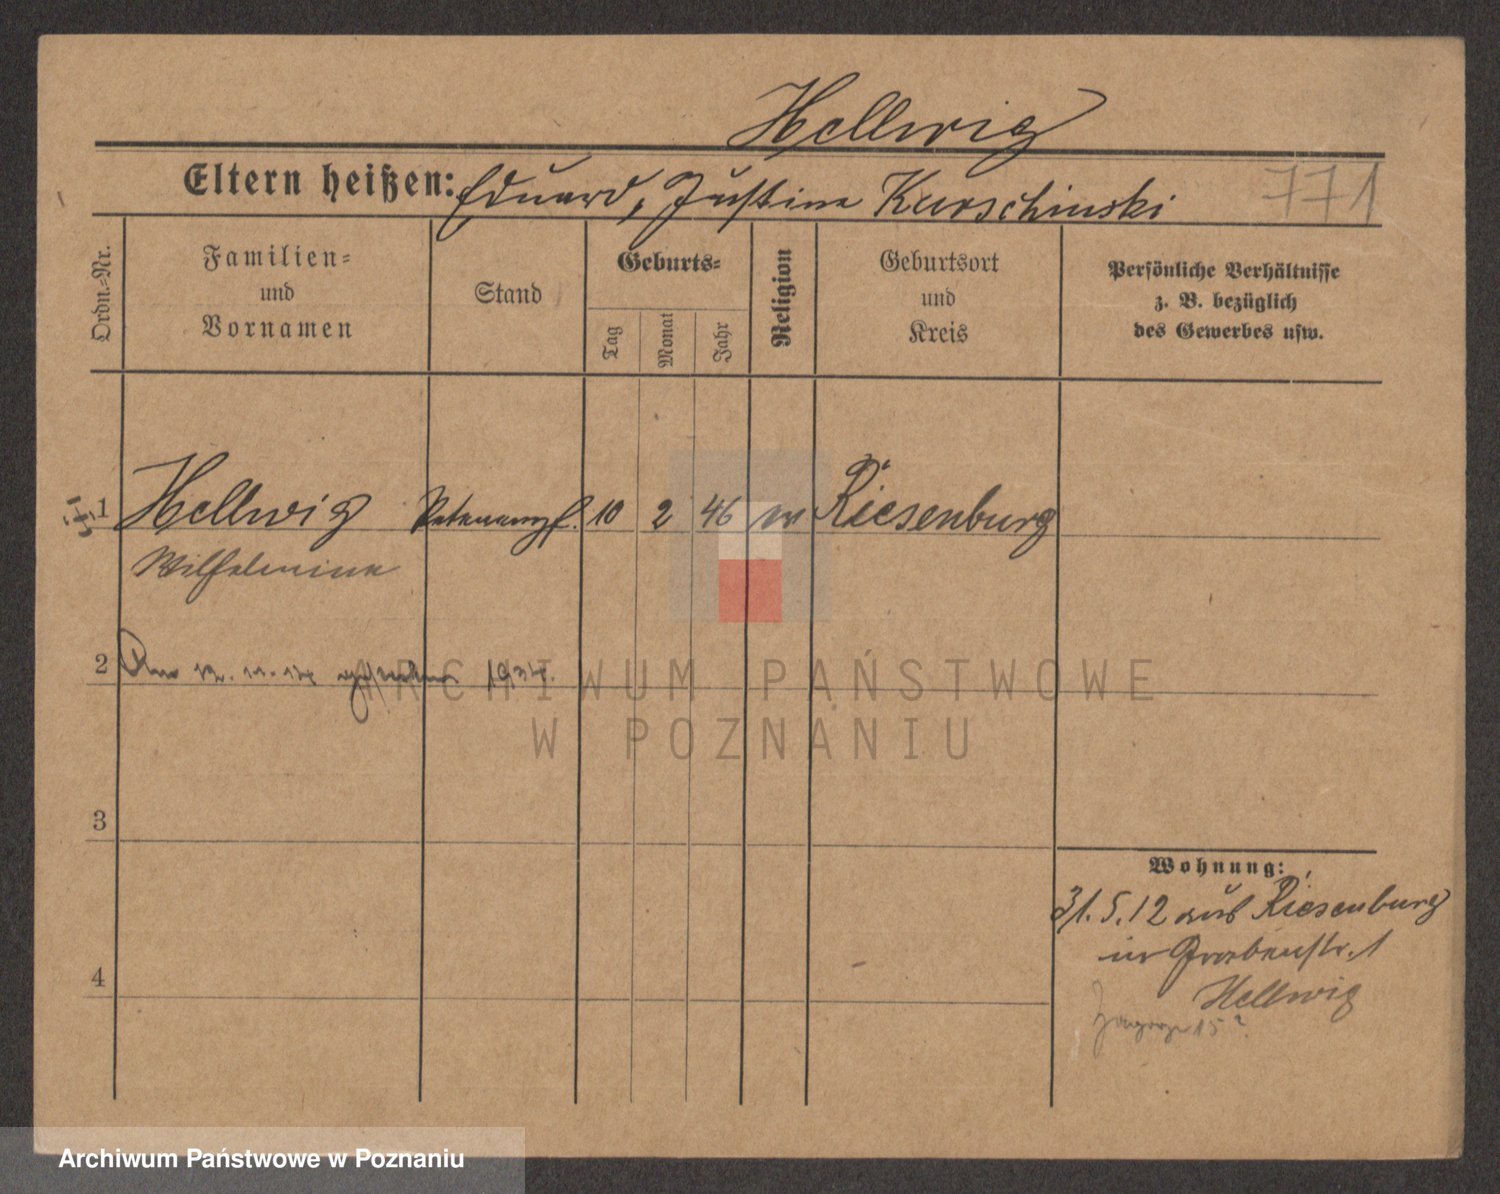 Hellwig
Eltern heißen: Eduard, Justine Kurschinski
771
Ordn.-Nr.
Familien-
und
Vornamen
Stand
Geburts-
Tag
Monat
Jahr
Religion
Geburtsort
und
Kreis
Persönliche Verhältnisse
z. B. bezüglich
des Gewerbes usw.
1 Hellwig 10 2 46 Riesenburg
Wilhelmine
2
3
4
Wohnung:
31.5.12 aus Riesenburg
in Grabenstr. 1
Hellwig
15
ARCHIWUM PAŃSTWOWE
W POZNANIU
Archiwum Państwowe w Poznaniu